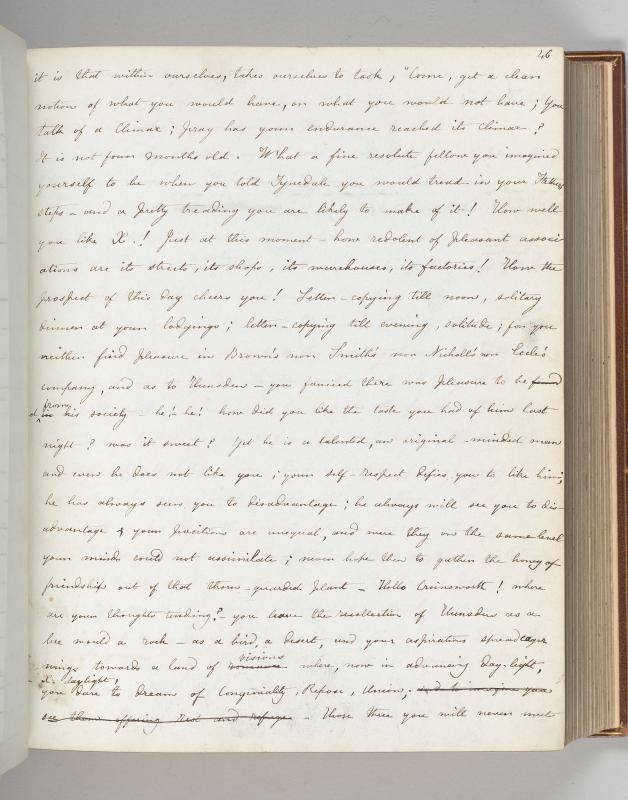 46
it is that within ourselves, takes ourselves to task, "Come, get a clean
notion of what you would have, on what you would not have; You
talk of a Climax; pray has your endurance reached its Climax?
It is not four months old. What a fine resolute fellow you imagined
yourself to be when you told Tynedale you would tread in your Father's
steps – and a pretty treading you are likely to make of it! How well
you like X.! Just at this moment – how redolent of pleasant associ-
ations are its streets, its shops, its warehouses, its factories! How the
prospect of this day cheers you! Letter-copying till noon, solitary
dinner at your lodgings; letter-copying till evening, solitude; for you
neither find pleasure in Brown's nor Smith's nor Nicholl's nor Eccle's
company, and as to Hunsden – you fancied there was pleasure to be found
from
in his society – he! he! how did you like the taste you had of him last
night? was it sweet? Yet he is a talented, an original-minded man
and even he does not like you; your self-respect defies you to like him;
he has always seen you to disadvantage; he always will see you to dis-
advantage & your positions are unequal, and were they on the same level
your minds could not assimilate; never hope then to gather the honey of
friendship out of that thorn-guarded plant – Hello Crimsworth! where
are your thoughts tending? – you leave the recollection of Hunsden as a
bee would a rock – as a bird, a desert, and your aspirations spread eager
visions
wings towards a land of where, now in advancing day-light,
X– daylight,
you dare to dream of Congeniality, Repose, Union; and to imagine you
see them offering rest and refuge – Those three you will never meet